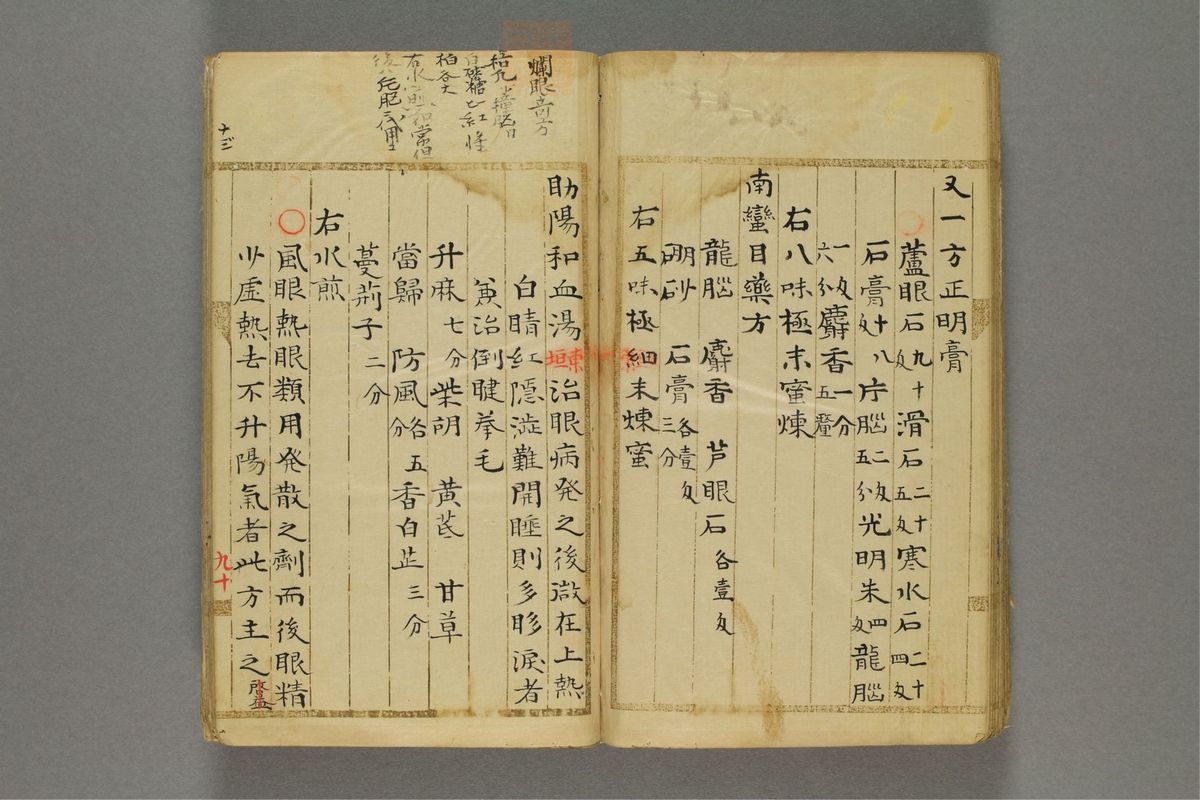 又一方正明膏
蘆眼石九十匁滑石二十五匁寒水石二十四匁
石膏十八匁片腦二匁五分光明朱四匁龍腦
一匁六分麝香一分五釐
右八味極末蜜煉
南蠻目藥方
龍腦 麝香 芦眼石各壹匁
硼砂 石膏各壹匁三分
右五味極細末煉蜜
爛眼奇方
白砂糖 紅
助陽和血湯東垣治眼病発之後微在上熱
白睛紅隱澁難開睡則多眵淚者
兼治倒睫拳毛
升麻七分柴胡 黄芪 甘草
當歸 防風各五分香白芷三分
蔓荊子二分
右水煎
風眼熱眼類用発散之劑而後眼精
少虚熱去不升陽氣者此方主之啓益
九十